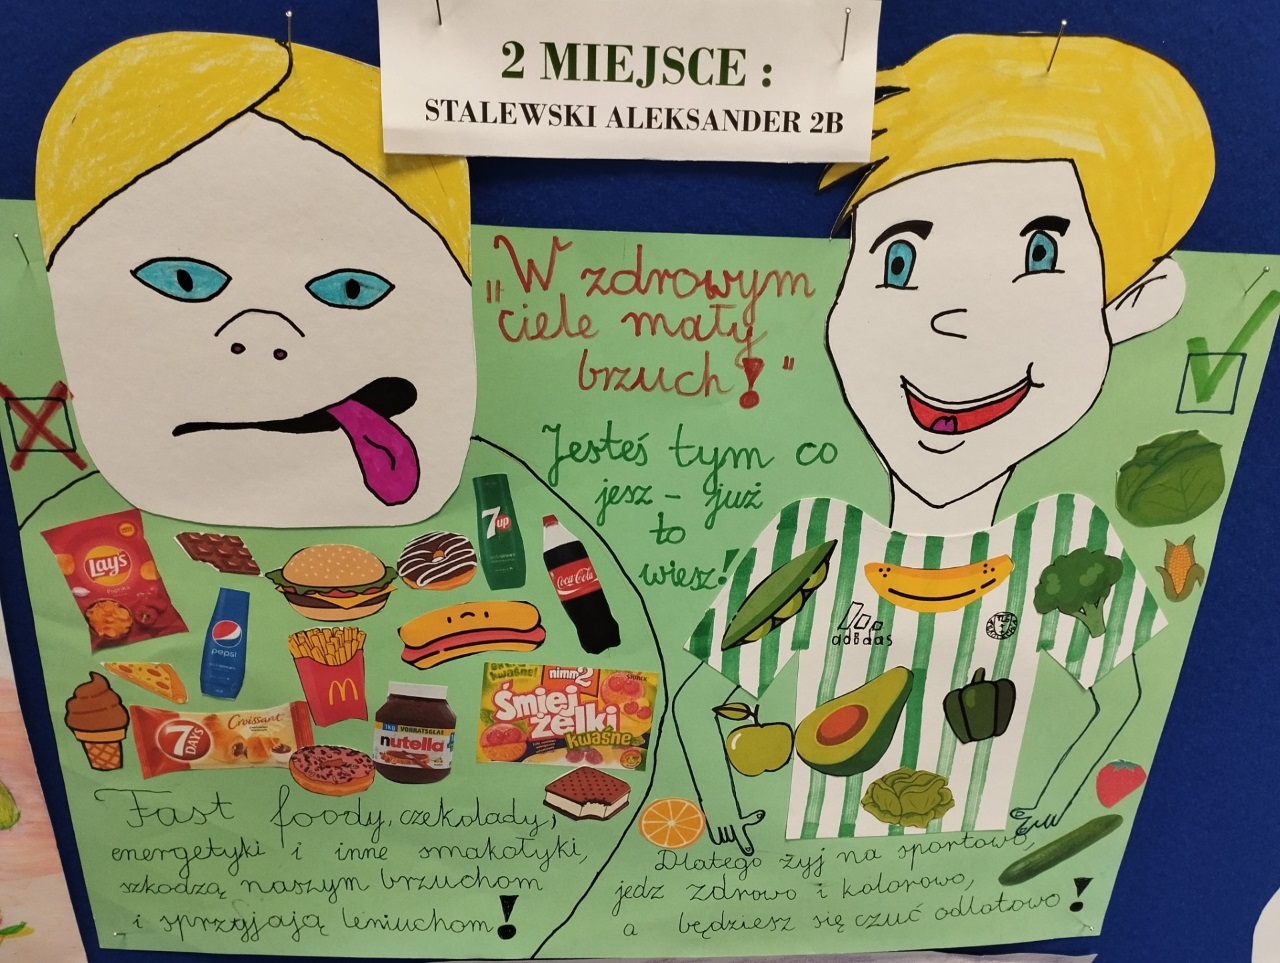 2 MIEJSCE :
STALEWSKI ALEKSANDER 2B
„W zdrowym
ciele mały
brzuch!"
Jesteś tym co
jesz - już
to
wiesz!
Lay's
7up
Coca-Cola
pepsi
7 DAYS
Croissant
nutella
kwaśne!
nimm2
Śmiej
żelki
kwaśne
adBdas
Fast foody, czekolady,
energetyki i inne smakołyki,
szkodzą naszym brzuchom
i sprzyjają leniuchom!
Dlatego żyj na sportowo,
jedz zdrowo i kolorowo,
a będziesz się czuć odlotowo!